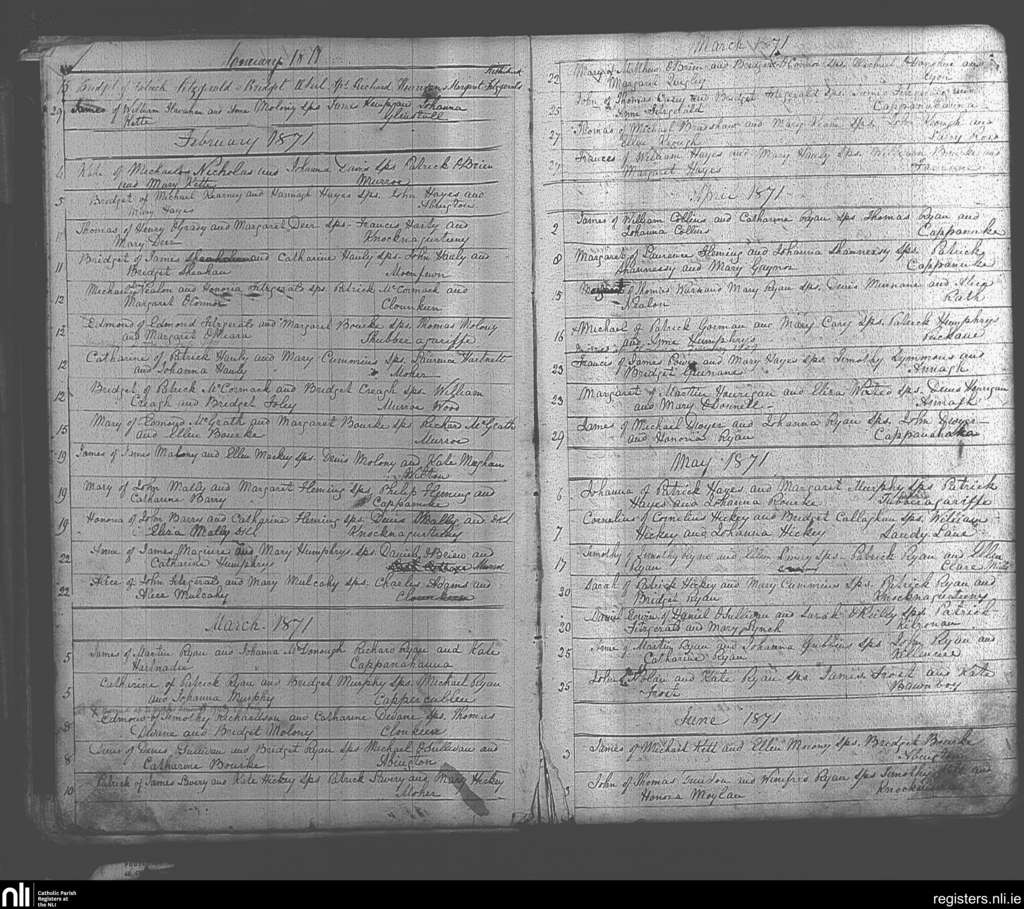 January 1871
Bridget of Patrick Fitzgerald Bridget Richard Margaret Fitzgerald
29 James of William and Anne Molony sps James and Johanna
Kette Glenstall
February 1871
4 Kate of Michael Nicholas and Johanna Davis sps Patrick O'Brien
and Mary Murroe
5 Bridget of Michael Kearney and Hannagh Hayes Sps. John Hayes and
Mary Hayes Abington
11 Thomas of Henry O'Grady and Margaret Deer Sps. Francis Hanly and
Mary Deer Knocknagurteeny
11 Bridget of James and Catharine Hanly sps. John Hanly and
Bridget Sheahan
12 Michael of and Honoria Fitzgerald sps Patrick McCormack and
Margaret O'Connor Clounkeen
12 Edmond of Edmond Fitzgerald and Margaret Bourke Sps. Thomas Molony
and Margaret O'Meara
12 Catharine of Patrick Hanly and Mary Cummins Sps. Laurence Hartnett
and Johanna Hanly Moher
12 Bridget of Patrick McCormack and Bridget Creagh sps. William
Creagh and Bridget Foley Murroe Wood
15 Mary of Edmond McGrath and Margaret Bourke sps Richard McGrath
and Ellen Bourke Murroe
19 James of James Malony and Ellen Mackey sps. Denis Molony and Kate Meghan
Wilton
19 Mary of John Mally and Margaret Fleming Sps. Philip Fleming and
Catharine Barry Cappanuke
19 Honora of John Barry and Catharine Fleming sps. Denis and
Eliza Mally
22 Anne of James Maguire and Mary Humphrys sps. Daniel O'Brien and
Catharine Humphrys Murroe
22 Alice of John Fitzgerald and Mary Mulcahy sps. Charles Adams and
Alice Mulcahy Clounkeen
March 1871
5 James of Martin Ryan and Johanna McDonough Richard Ryan and Kate
Cappanahanna
5 Catharine of Patrick Ryan and Bridget Murphy sps. Michael Ryan
and Johanna Murphy Cappercullen
8 Edmond of Timothy Richardson and Catharine Dwane Sps. Thomas
Dwane and Bridget Molony Clonkeen
8 Denis of Denis Sullivan and Bridget Ryan Sps. Michael O'Sullivan and
Catharine Bourke Abington
10 Patrick of James and Kate Hickey Sps Patrick and Mary Hickey
Moher
March 1871
22 Mary of Matthew O'Brien and Bridget O'Connor Sps. Michael and
Margaret Quigley
25 John of Thomas Casey and Bridget Fitzgerald Sps. James Fitzgerald and
Anne Fitzgerald Cappanahanna
27 Thomas of Michael Bradshaw and Mary Sps. John Keough and
Ellen Keough
27 Frances of William Hayes and Mary Hanly Sps. William Bourke and
Margaret Hayes Farnane
April 1871
2 James of William Collins and Catharine Ryan Sps Thomas Ryan and
Johanna Collins Cappanuke
8 Margaret of Laurence Fleming and Johanna Shannessy sps. Patrick
Shannessy and Mary Gaynor Cappanuke
15 of Thomas and Mary Ryan sps. Denis Murnane and Alice
Nealon Rath
16 Michael of Patrick Gorman and Mary Cary Sps. Patrick Humphrys
and Anne Humphrys
23 Francis of James Power and Mary Hayes Sps. Timothy Symmons and
Bridget Annagh
23 Margaret of Martin Hourigan and Eliza Sps. Denis Hourigan
and Mary O'Donnell Annagh
29 James of Michael Dwyer and Johanna Ryan Sps. John Dwyer
and Honoria Ryan Cappanahana
May 1871
6 Johanna of Patrick Hayes and Margaret Murphy Sps Patrick
Hayes and Johanna Bourke
7 Cornelius of Cornelius Hickey and Bridget Callaghan sps. William
Hickey and Johanna Hickey Landy Lane
17 Timothy of Timothy Ryan and Ellen sps. Patrick Ryan and Ellen
Ryan Clare
20 Sarah of Patrick Hickey and Mary Cummins Sps. Patrick Ryan and
Bridget Ryan Knocknagurteeny
20 Daniel of Daniel O'Sullivan and Sarah O'Reilly Sps. Patrick
Fitzgerald and Mary Lynch Kilronan
25 Anne of Martin Ryan and Johanna Gubbins Sps John Ryan and
Catharine Ryan
25 John of Nolan and Kate Ryan sps. James Frost and Kate
Frost
June 1871
3 James of Michael Kett and Ellen Sps. Bridget Bourke
Abington
3 John of Thomas and Winifred Ryan sps Timothy and
Honora Moylan
nli
Catholic Parish
Registers at
the NLI
registers.nli.ie